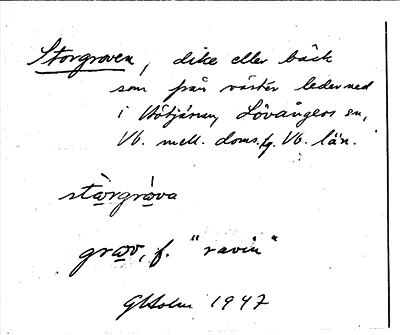 Storgraven, dike eller bäck
som från väster leder ned
i Hötjärnen, Lövångers sn,
Vb. mell. doms.fg. Vb. län.
stòrgráva
grav, f. "ravin"
GHolm 1947